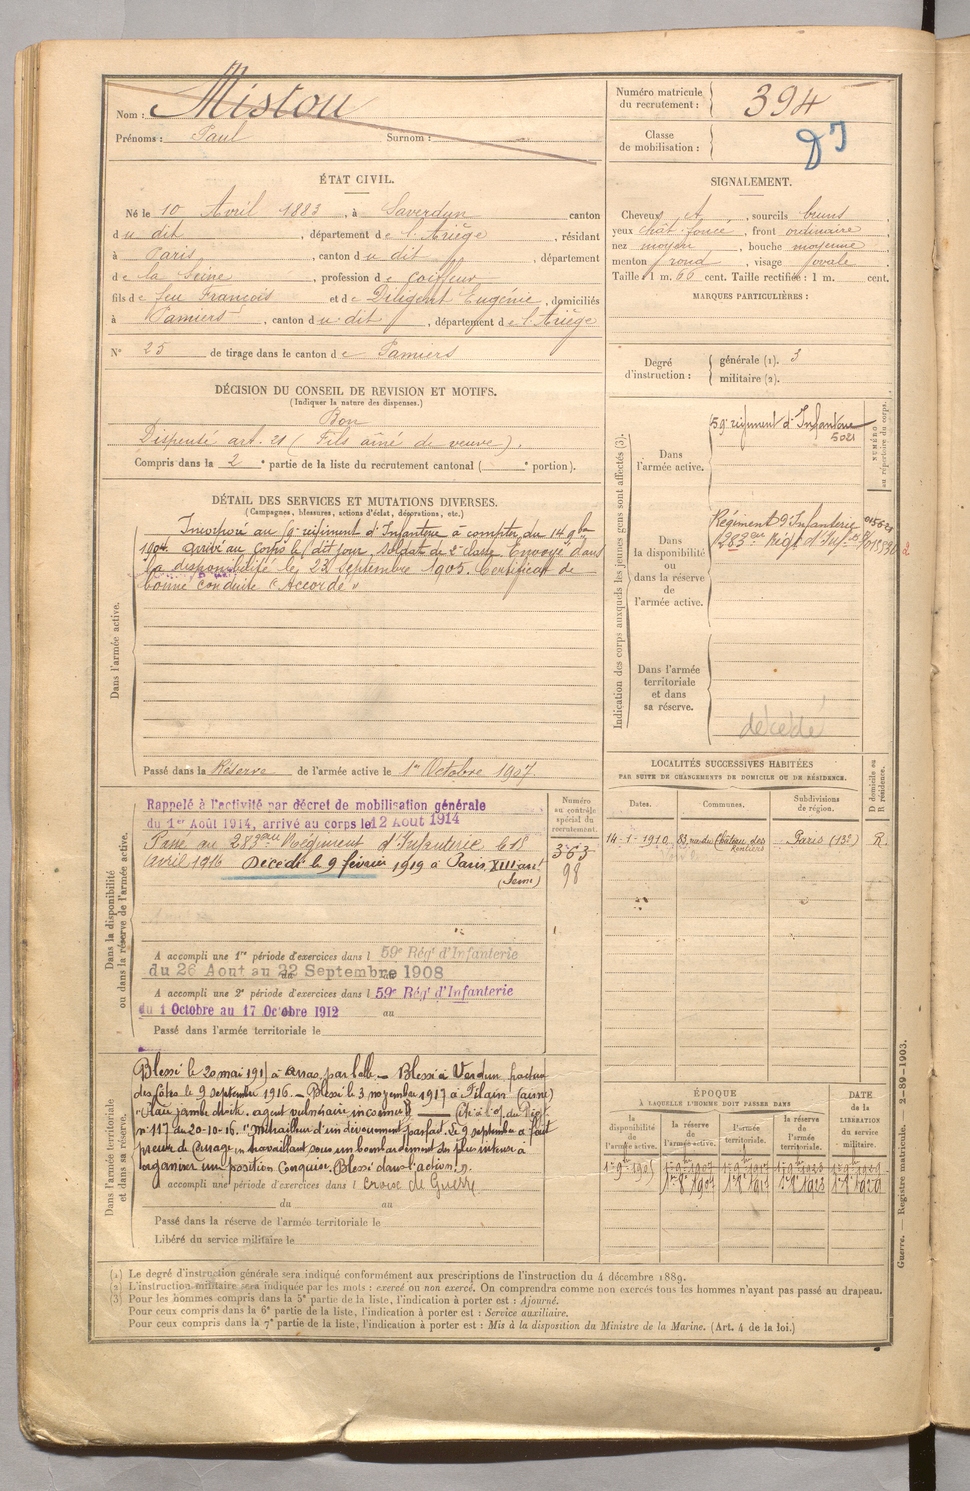 Nom : Mistou
Prénoms : Paul Surnom :
ÉTAT CIVIL.
Né le 10 Avril 1883, à Saverdun canton
du dit, département de l'Ariège, résidant
à Paris, canton du dit, département
de la Seine, profession de coiffeur
fils de feu François et de Diligent Eugénie, domiciliés
à Pamiers, canton du dit, département de l'Ariège
N° 25 de tirage dans le canton de Pamiers
DÉCISION DU CONSEIL DE REVISION ET MOTIFS.
(Indiquer la nature des dispenses.)
Bon
Dispensé art. 21 (Fils aîné de veuve).
Compris dans la 2e partie de la liste du recrutement cantonal ( e portion).
DÉTAIL DES SERVICES ET MUTATIONS DIVERSES.
(Campagnes, blessures, actions d'éclat, décorations, etc.)
Dans l'armée active.
Incorporé au 59e régiment d'Infanterie à compter du 14 9bre
1904, arrivé au corps le dit jour, soldat de 2e classe. Envoyé dans
la disponibilité le 23 Septembre 1905. Certificat de
bonne conduite "Accordé"
Passé dans la Réserve de l'armée active le 1er Octobre 1907.
Dans la disponibilité
ou dans la réserve de l'armée active.
Rappelé à l'activité par décret de mobilisation générale
du 1er Août 1914, arrivé au corps le 12 Aout 1914
Passé au 283eme Régiment d'Infanterie le 18
avril 1916 Décédé le 9 février 1919 à Paris XIIIe arrt
(Seine)
A accompli une 1re période d'exercices dans l 59e Régt d'Infanterie
du 26 Aout au 22 Septembre 1908
A accompli une 2e période d'exercices dans l 59e Régt d'Infanterie
du 1 Octobre au 17 Octobre 1912 au
Passé dans l'armée territoriale le
Numéro
au contrôle
spécial du
recrutement.
363
98
Dans l'armée territoriale
et dans sa réserve.
Blessé le 20 mai 191 à Arras, par balle. — Blessé à Verdun, fracture
des côtes le 9 septembre 1916. — Blessé le 3 novembre 1917 à Filain (aisne)
"Plaie jambe droite. agent vulnérant inconnu". — Cité à l'o/ du Régt
n° 117 du 20-10-16. "Mitrailleur d'un dévouement parfait. Le 9 septembre a fait
preuve de courage en travaillant sous un bombardement des plus intense à
organiser une position conquise. Blessé dans l'action".
accompli une période d'exercices dans l Croix de Guerre
du au
Passé dans la réserve de l'armée territoriale le
Libéré du service militaire le
Numéro matricule
du recrutement : 394
Classe
de mobilisation :
SIGNALEMENT.
Cheveux , sourcils bruns
yeux chât. foncé, front ordinaire
nez moyen, bouche moyenne
menton rond, visage ovale
Taille : 1 m. 66 cent. Taille rectifiée : 1 m. cent.
MARQUES PARTICULIÈRES :
Degré
d'instruction :
générale (1). 3
militaire (2).
Indication des corps auxquels les jeunes gens sont affectés (3).
NUMÉRO
au répertoire du corps.
Dans
l'armée active.
59e régiment d'Infanterie
5021
Dans
la disponibilité
ou
dans la réserve
de
l'armée active.
Régiment d'Infanterie
283eme Régt d'Infie
Dans l'armée
territoriale
et dans
sa réserve.
décédé
LOCALITÉS SUCCESSIVES HABITÉES
PAR SUITE DE CHANGEMENTS DE DOMICILE OU DE RÉSIDENCE.
Dates.
Communes.
Subdivisions
de région.
D domicile ou
R résidence.
14-1-1910 83, rue du Château des Rentiers Paris (13e) R
ÉPOQUE
À LAQUELLE L'HOMME DOIT PASSER DANS
la
disponibilité
de
l'armée active.
la réserve
de
l'armée active.
l'armée
territoriale.
la réserve
de
l'armée
territoriale.
DATE
de la
LIBÉRATION
du service
militaire.
Guerre. — Registre matricule. 2-89-1903.
(1) Le degré d'instruction générale sera indiqué conformément aux prescriptions de l'instruction du 4 décembre 1889.
(2) L'instruction militaire sera indiquée par les mots : exercé ou non exercé. On comprendra comme non exercés tous les hommes n'ayant pas passé au drapeau.
(3) Pour les hommes compris dans la 5e partie de la liste, l'indication à porter est : Ajourné.
Pour ceux compris dans la 6e partie de la liste, l'indication à porter est : Service auxiliaire.
Pour ceux compris dans la 7e partie de la liste, l'indication à porter est : Mis à la disposition du Ministre de la Marine. (Art. 4 de la loi.)